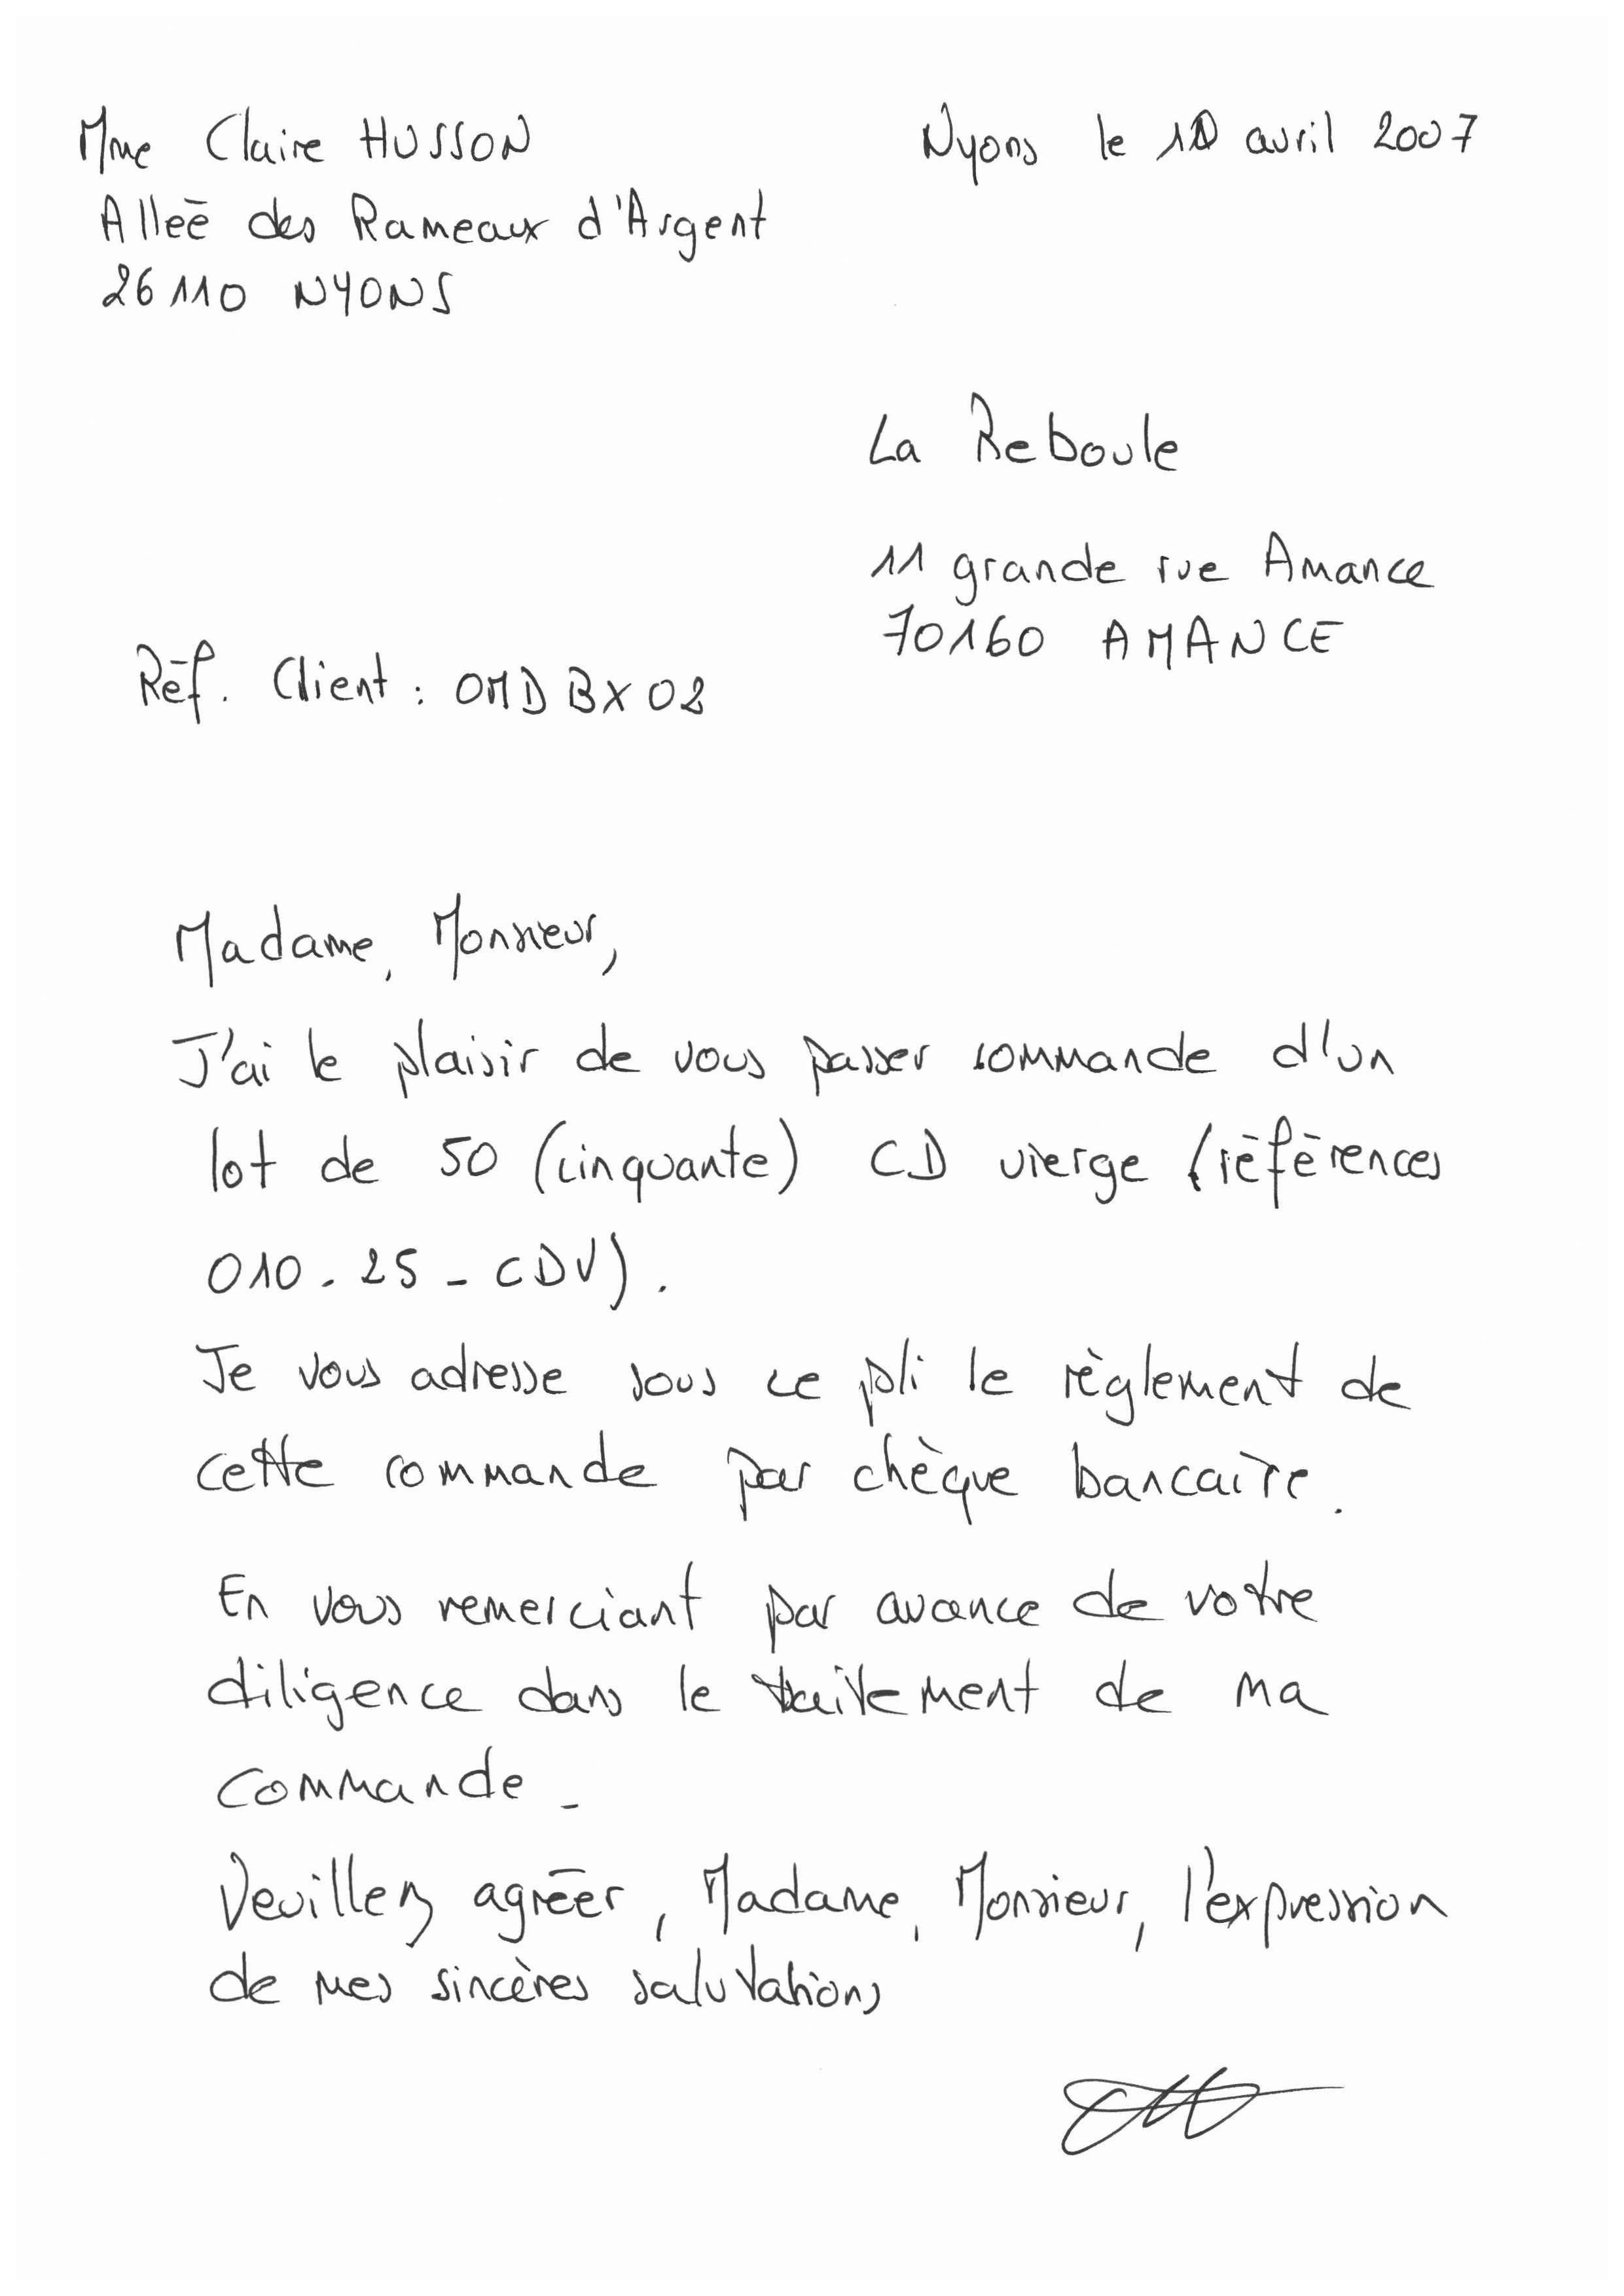 Mme Claire HUSSON
Nyons le 10 avril 2007
Alleé des Rameaux d'Argent
26110 NYONS
La Reboule
11 grande rue Amance
70160 AMANCE
Réf. Client : OMDBX02
Madame, Monsieur,
J'ai le plaisir de vous passer commande d'un
lot de 50 (cinquante) CD vierge (références
010-25-CDV).
Je vous adresse sous ce pli le règlement de
cette commande par chèque bancaire.
En vous remerciant par avance de votre
diligence dans le traitement de ma
commande.
Veuillez agréer, Madame, Monsieur, l'expression
de mes sincères salutations